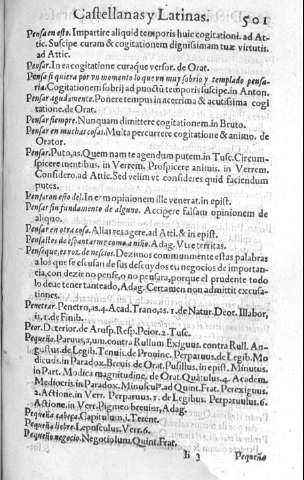 Castellanas y Latinas. 501
Pensa en esto. Impartire aliquid temporis huic cogitationi. ad At-
tic. Suscipe curam & cogitationem dignissimam tuæ virtutis.
ad Attic.
Pensar. In ea cogitatione curaque versor. de Orat.
Pensa si quiera por vn momento lo que vn muy sobrio y templado pensa-
ria. Cogitationem sobrij ad punctũ temporis suscipe. in Anton.
Pensar agudamente. Ponere tempus in acerrima & acutissima cogi
tatione. de Orat.
Pensar siempre. Nunquam dimittere cogitationem. in Bruto.
Pensar en muchas cosas. Multa percurrere cogitatione & animo. de
Orator.
Pensar. Puto, as. Quem nam te agendum putem. in Tusc. Circum-
spicere mentibus. in Verrem. Prospicere animis. in Verrem.
Considero. ad Attic. Sed velim vt consideres quid faciendum
putes.
Pensaron esto del. In eam opinionem ille venerat. in epist.
Pensar sin fundamento de alguno. Accipere falsam opinionem de
aliquo.
Pensar en otra cosa. Alias res agere. ad Atti. & in epist.
Pensastes de espantarme como a niño. Adag. Vt territas.
Penseque, es voz de necios. Dezimos communmente estas palabras
a los que se escusan de sus descuydos en negocios de importan-
cia, con dezir no pense, o no pensara, porque el prudente todo
lo deue tener tanteado, Adag. Certamen non admittit excusa-
tiones.
Penetrar. Penetro, as. 4. Acad. Trano, as. 1. de Natur. Deor. Illabor,
is. 1. de Finib.
Peor. Deterior. de Arusp. Resp. Peior. 2. Tusc.
Pequeño. Paruus, a, um. contra Rullum Exiguus. contra Rull. An-
gustus. de Legib. Tenuis. de Prouinc. Perparuus. de Legib. Mo
dicus. in Paradox. Breuis. de Orat. Pusillus. in epist. Minutus.
in Part. Modica magnitudine. de Orat. Quãtulus. 4. Academ.
Mediocris. in Paradox. Minuscul⁹. ad Quint. Frat. Perexiguus.
2. Actione. in Verr. Perparuus. 1. de Legibus. Perparuulus. 6.
Actione. in Verr. Pigmeo breuior, Adag.
Pequeña cabeça. Capitulum. i. Terent.
Pequeña liebre. Lepusculus. Verr. 6.
Pequeño negocio. Negotiolum. Quint. Frat.
Ii 3 Pequeño